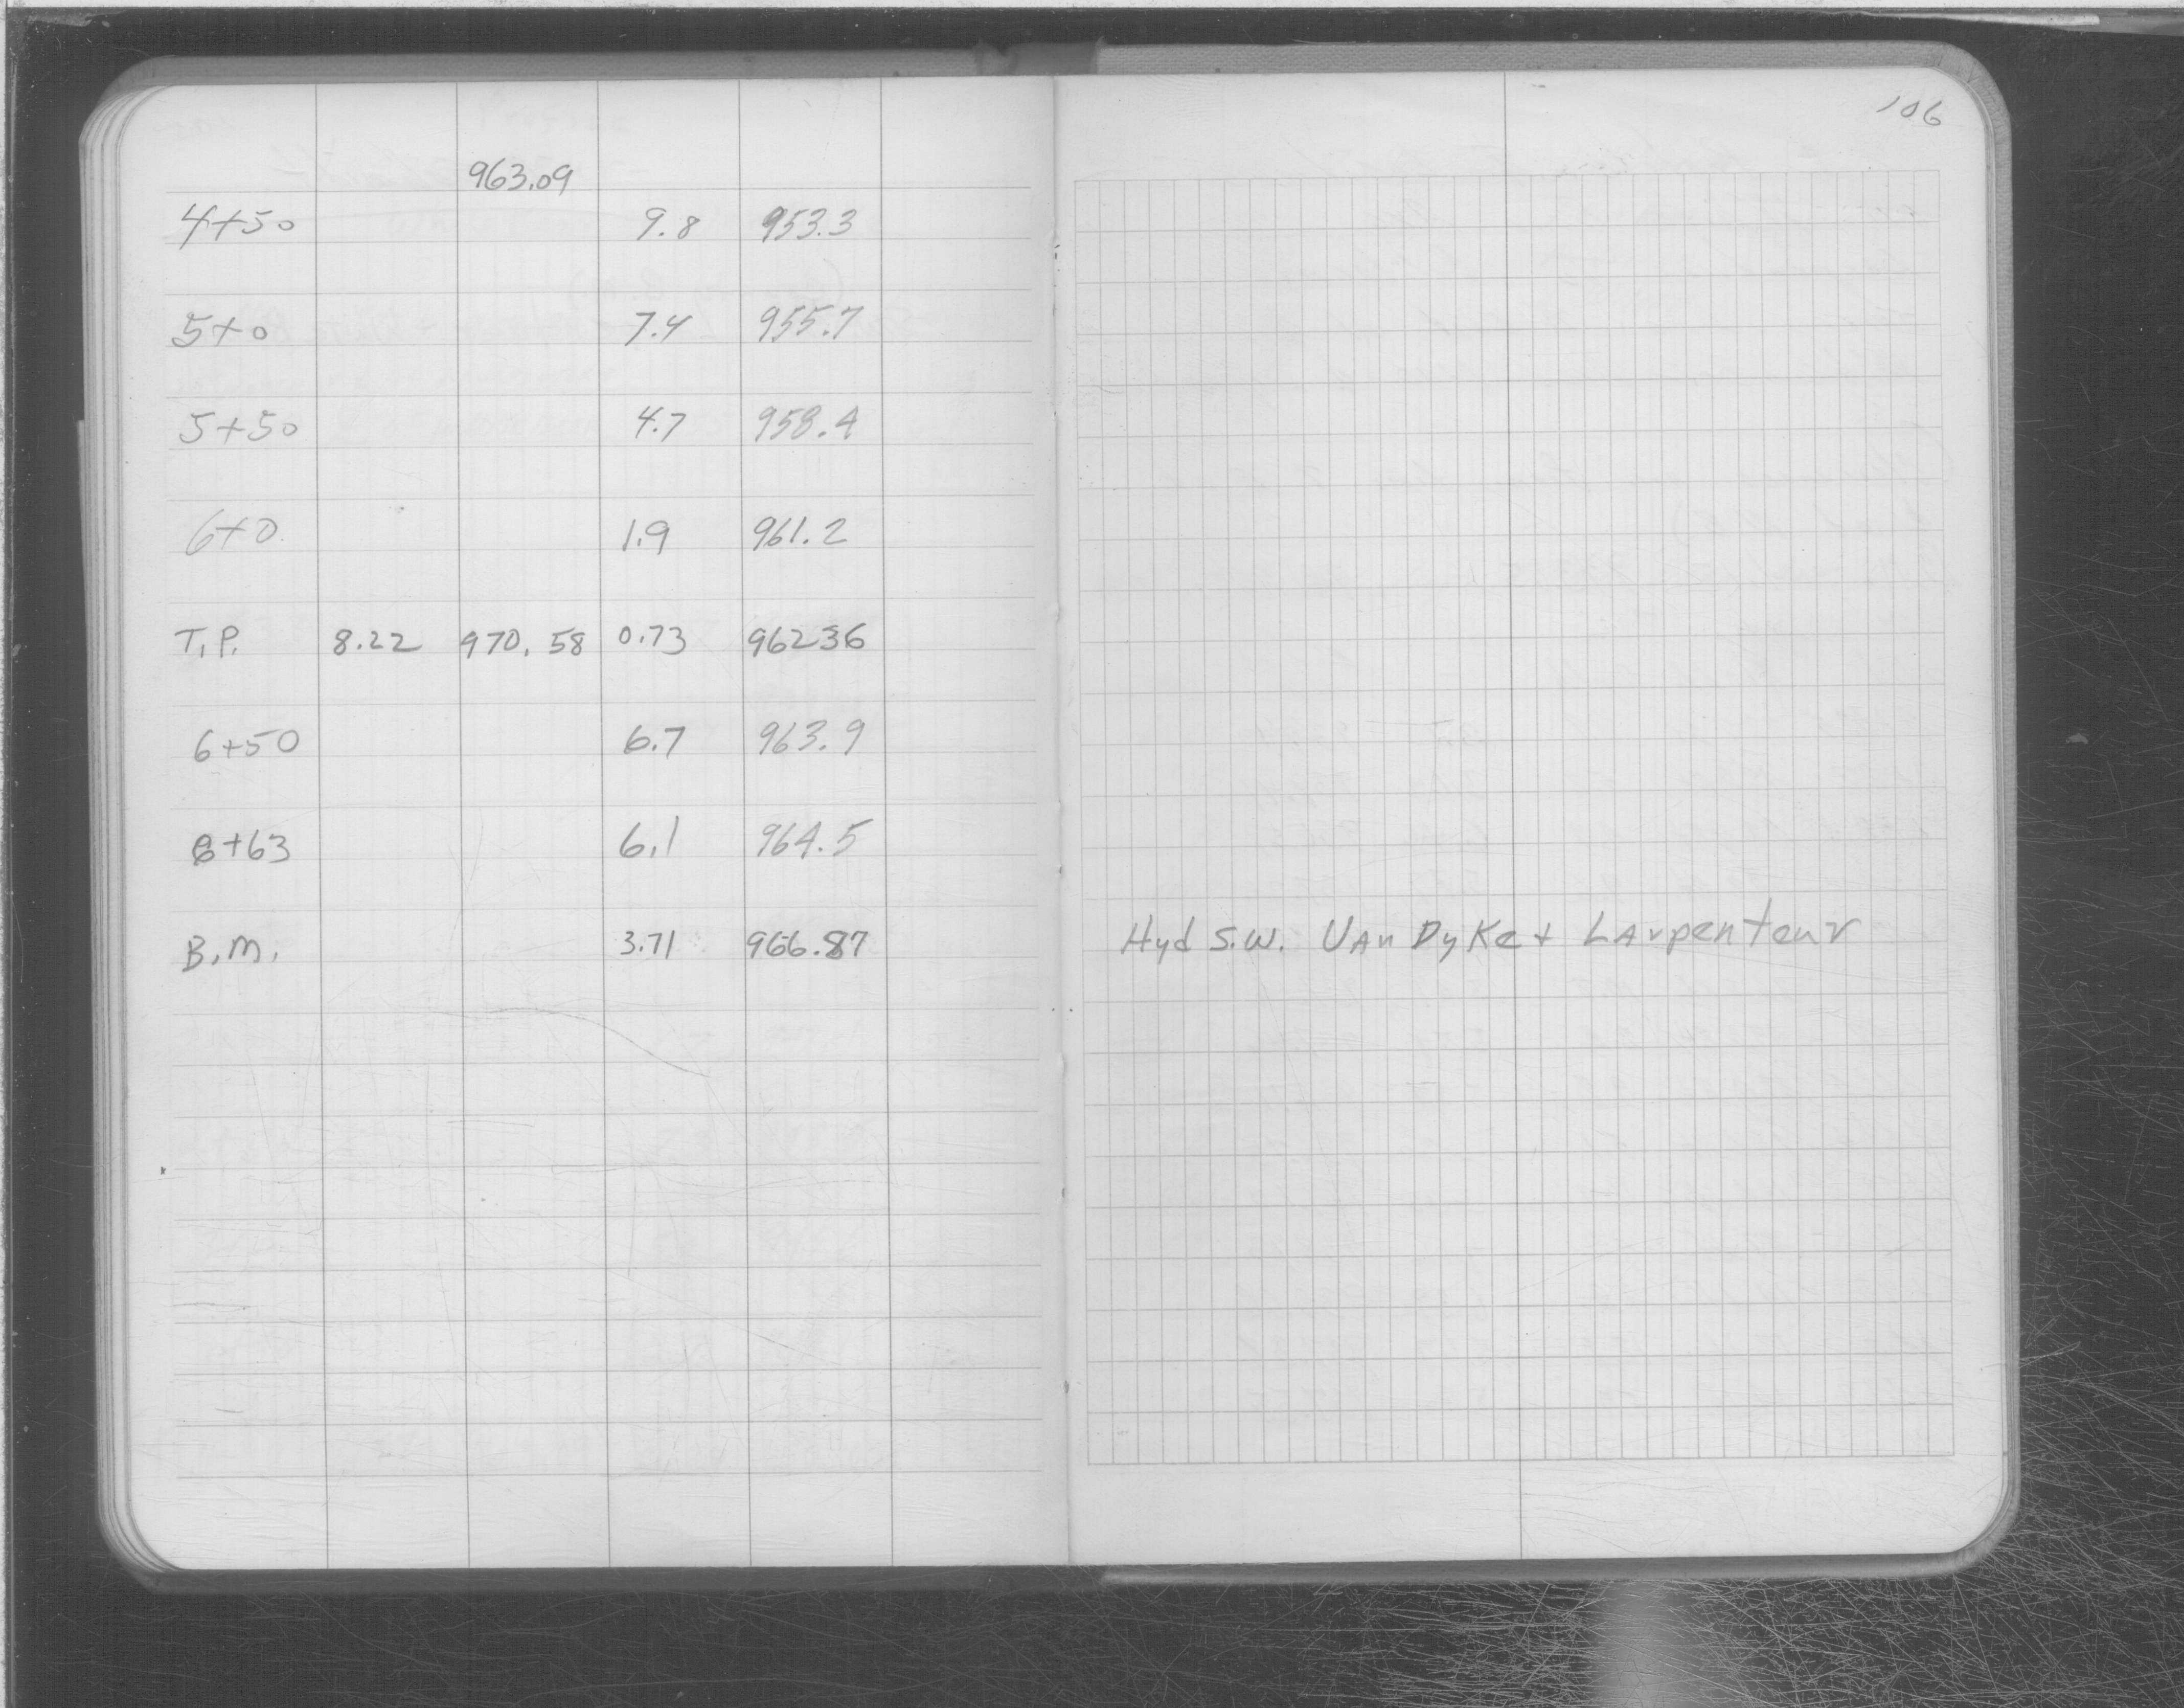 106
963.09
4+50 9.8 953.3
5+0 7.4 955.7
5+50 4.7 958.4
6+0 1.9 961.2
T.P. 8.22 970.58 0.73 96236
6+50 6.7 963.9
6+63 6.1 964.5
B.M. 3.71 966.87 Hyd S.W. Van Dyke + Larpenteur